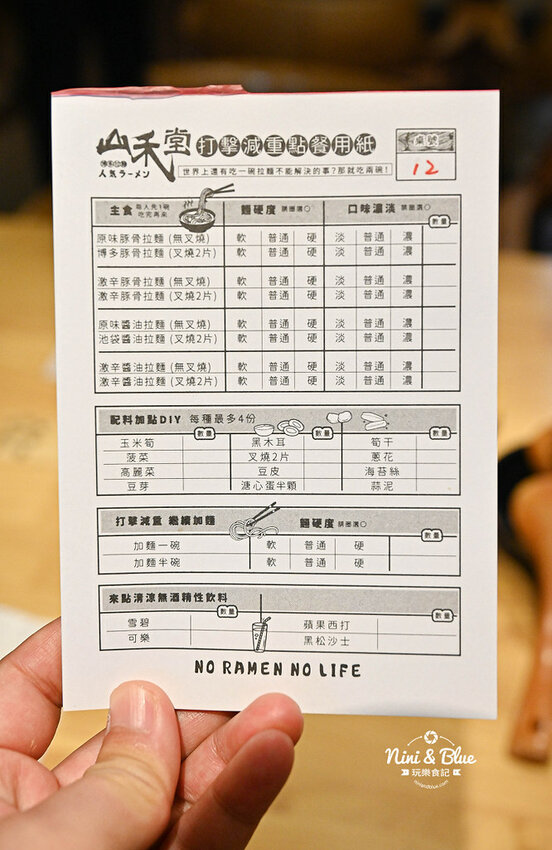 山禾堂 打擊減重點餐用紙
人気ラーメン
世界上還有吃一碗拉麵不能解決的事?那就吃兩碗!
桌號
12
主食 每人先1碗 吃完再來 麵硬度 請圈選○ 口味濃淡 請圈選○ 數量
原味豚骨拉麵 (無叉燒) 軟 普通 硬 淡 普通 濃
博多豚骨拉麵 (叉燒2片) 軟 普通 硬 淡 普通 濃
激辛豚骨拉麵 (無叉燒) 軟 普通 硬 淡 普通 濃
激辛豚骨拉麵 (叉燒2片) 軟 普通 硬 淡 普通 濃
原味醬油拉麵 (無叉燒) 軟 普通 硬 淡 普通 濃
池袋醬油拉麵 (叉燒2片) 軟 普通 硬 淡 普通 濃
激辛醬油拉麵 (無叉燒) 軟 普通 硬 淡 普通 濃
激辛醬油拉麵 (叉燒2片) 軟 普通 硬 淡 普通 濃
配料加點DIY 每種最多4份
數量 數量 數量
玉米筍 黑木耳 筍干
菠菜 叉燒2片 蔥花
高麗菜 豆皮 海苔絲
豆芽 溏心蛋半顆 蒜泥
打擊減量 繼續加麵 麵硬度 請圈選○ 數量
加麵一碗 軟 普通 硬
加麵半碗 軟 普通 硬
來點清涼無酒精性飲料
數量 數量
雪碧 蘋果西打
可樂 黑松沙士
NO RAMEN NO LIFE
Nini & Blue
玩樂食記
niniandblue.com